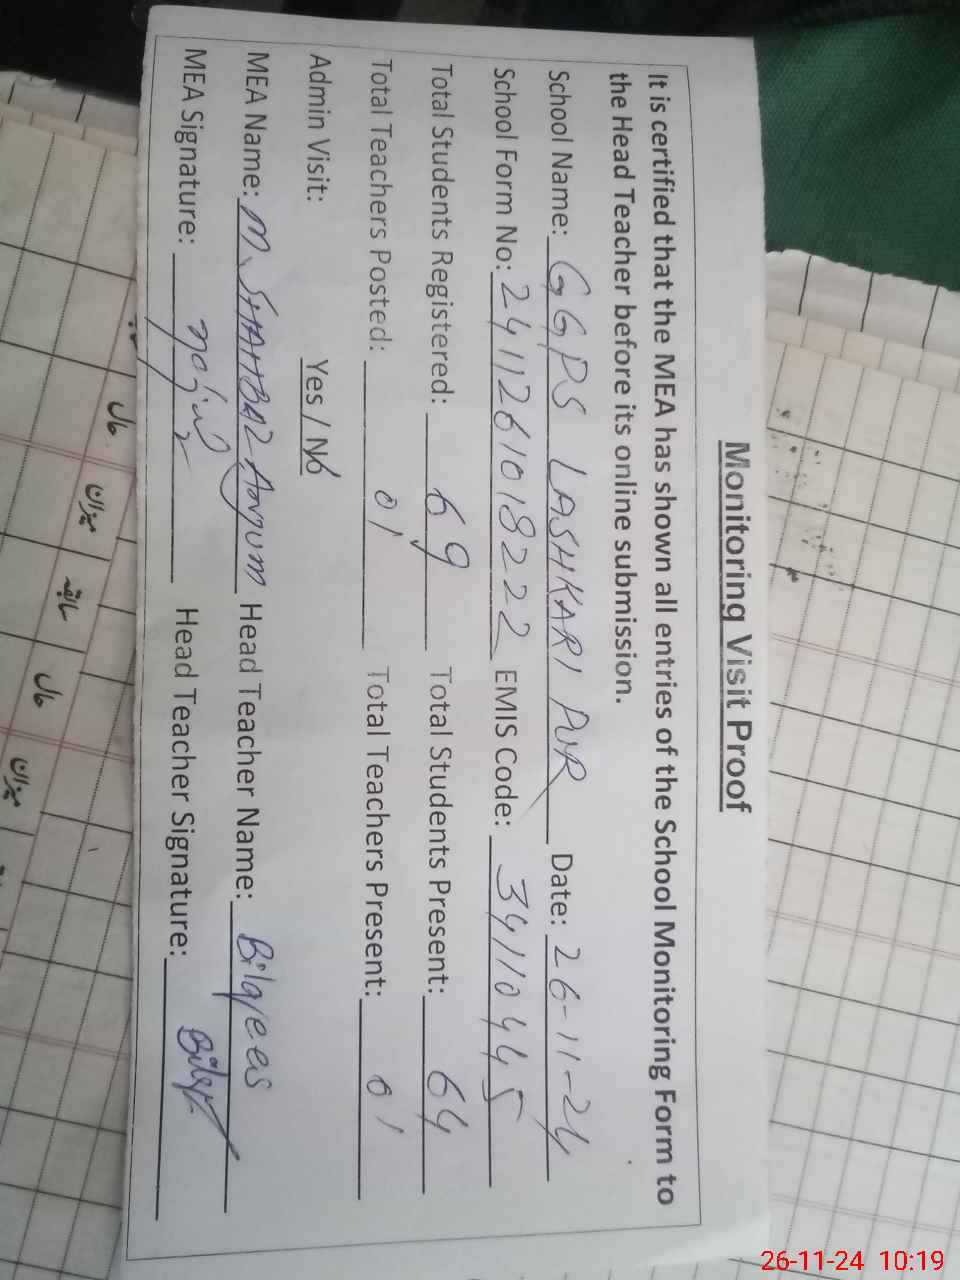 Monitoring Visit Proof
It is certified that the MEA has shown all entries of the School Monitoring Form to
the Head Teacher before its online submission.
School Name: GGPS LASHKARI PUR Date: 26-11-24
School Form No: 2411261018222 EMIS Code: 34110445
Total Students Registered: 69 Total Students Present: 64
Total Teachers Posted: 01 Total Teachers Present: 01
Admin Visit: Yes / No
MEA Name: M. SHAHBAZ Anjum Head Teacher Name: Bilqees
MEA Signature: Head Teacher Signature:
ھال
میزان
سابقہ
ھال
میزان
26-11-24 10:19